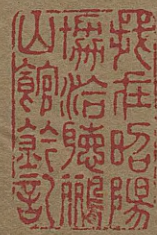 我在昭陽
協洽聽鸝
山館餘記